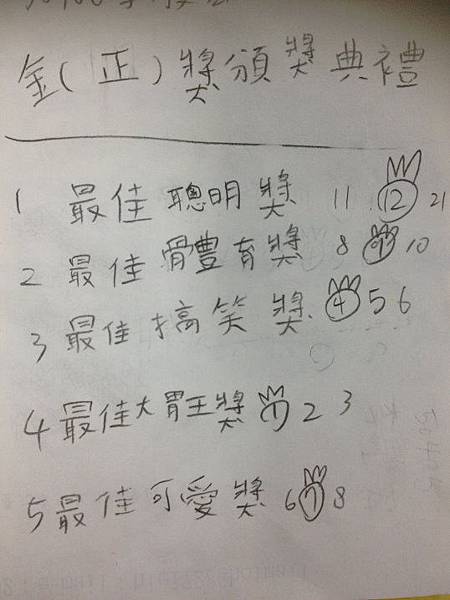 金(正)獎頒獎典禮
1 最佳聰明獎 11 12 21
2 最佳體育獎 8 9 10
3 最佳搞笑獎 4 5 6
4 最佳大胃王獎 1 2 3
5 最佳可愛獎 6 7 8